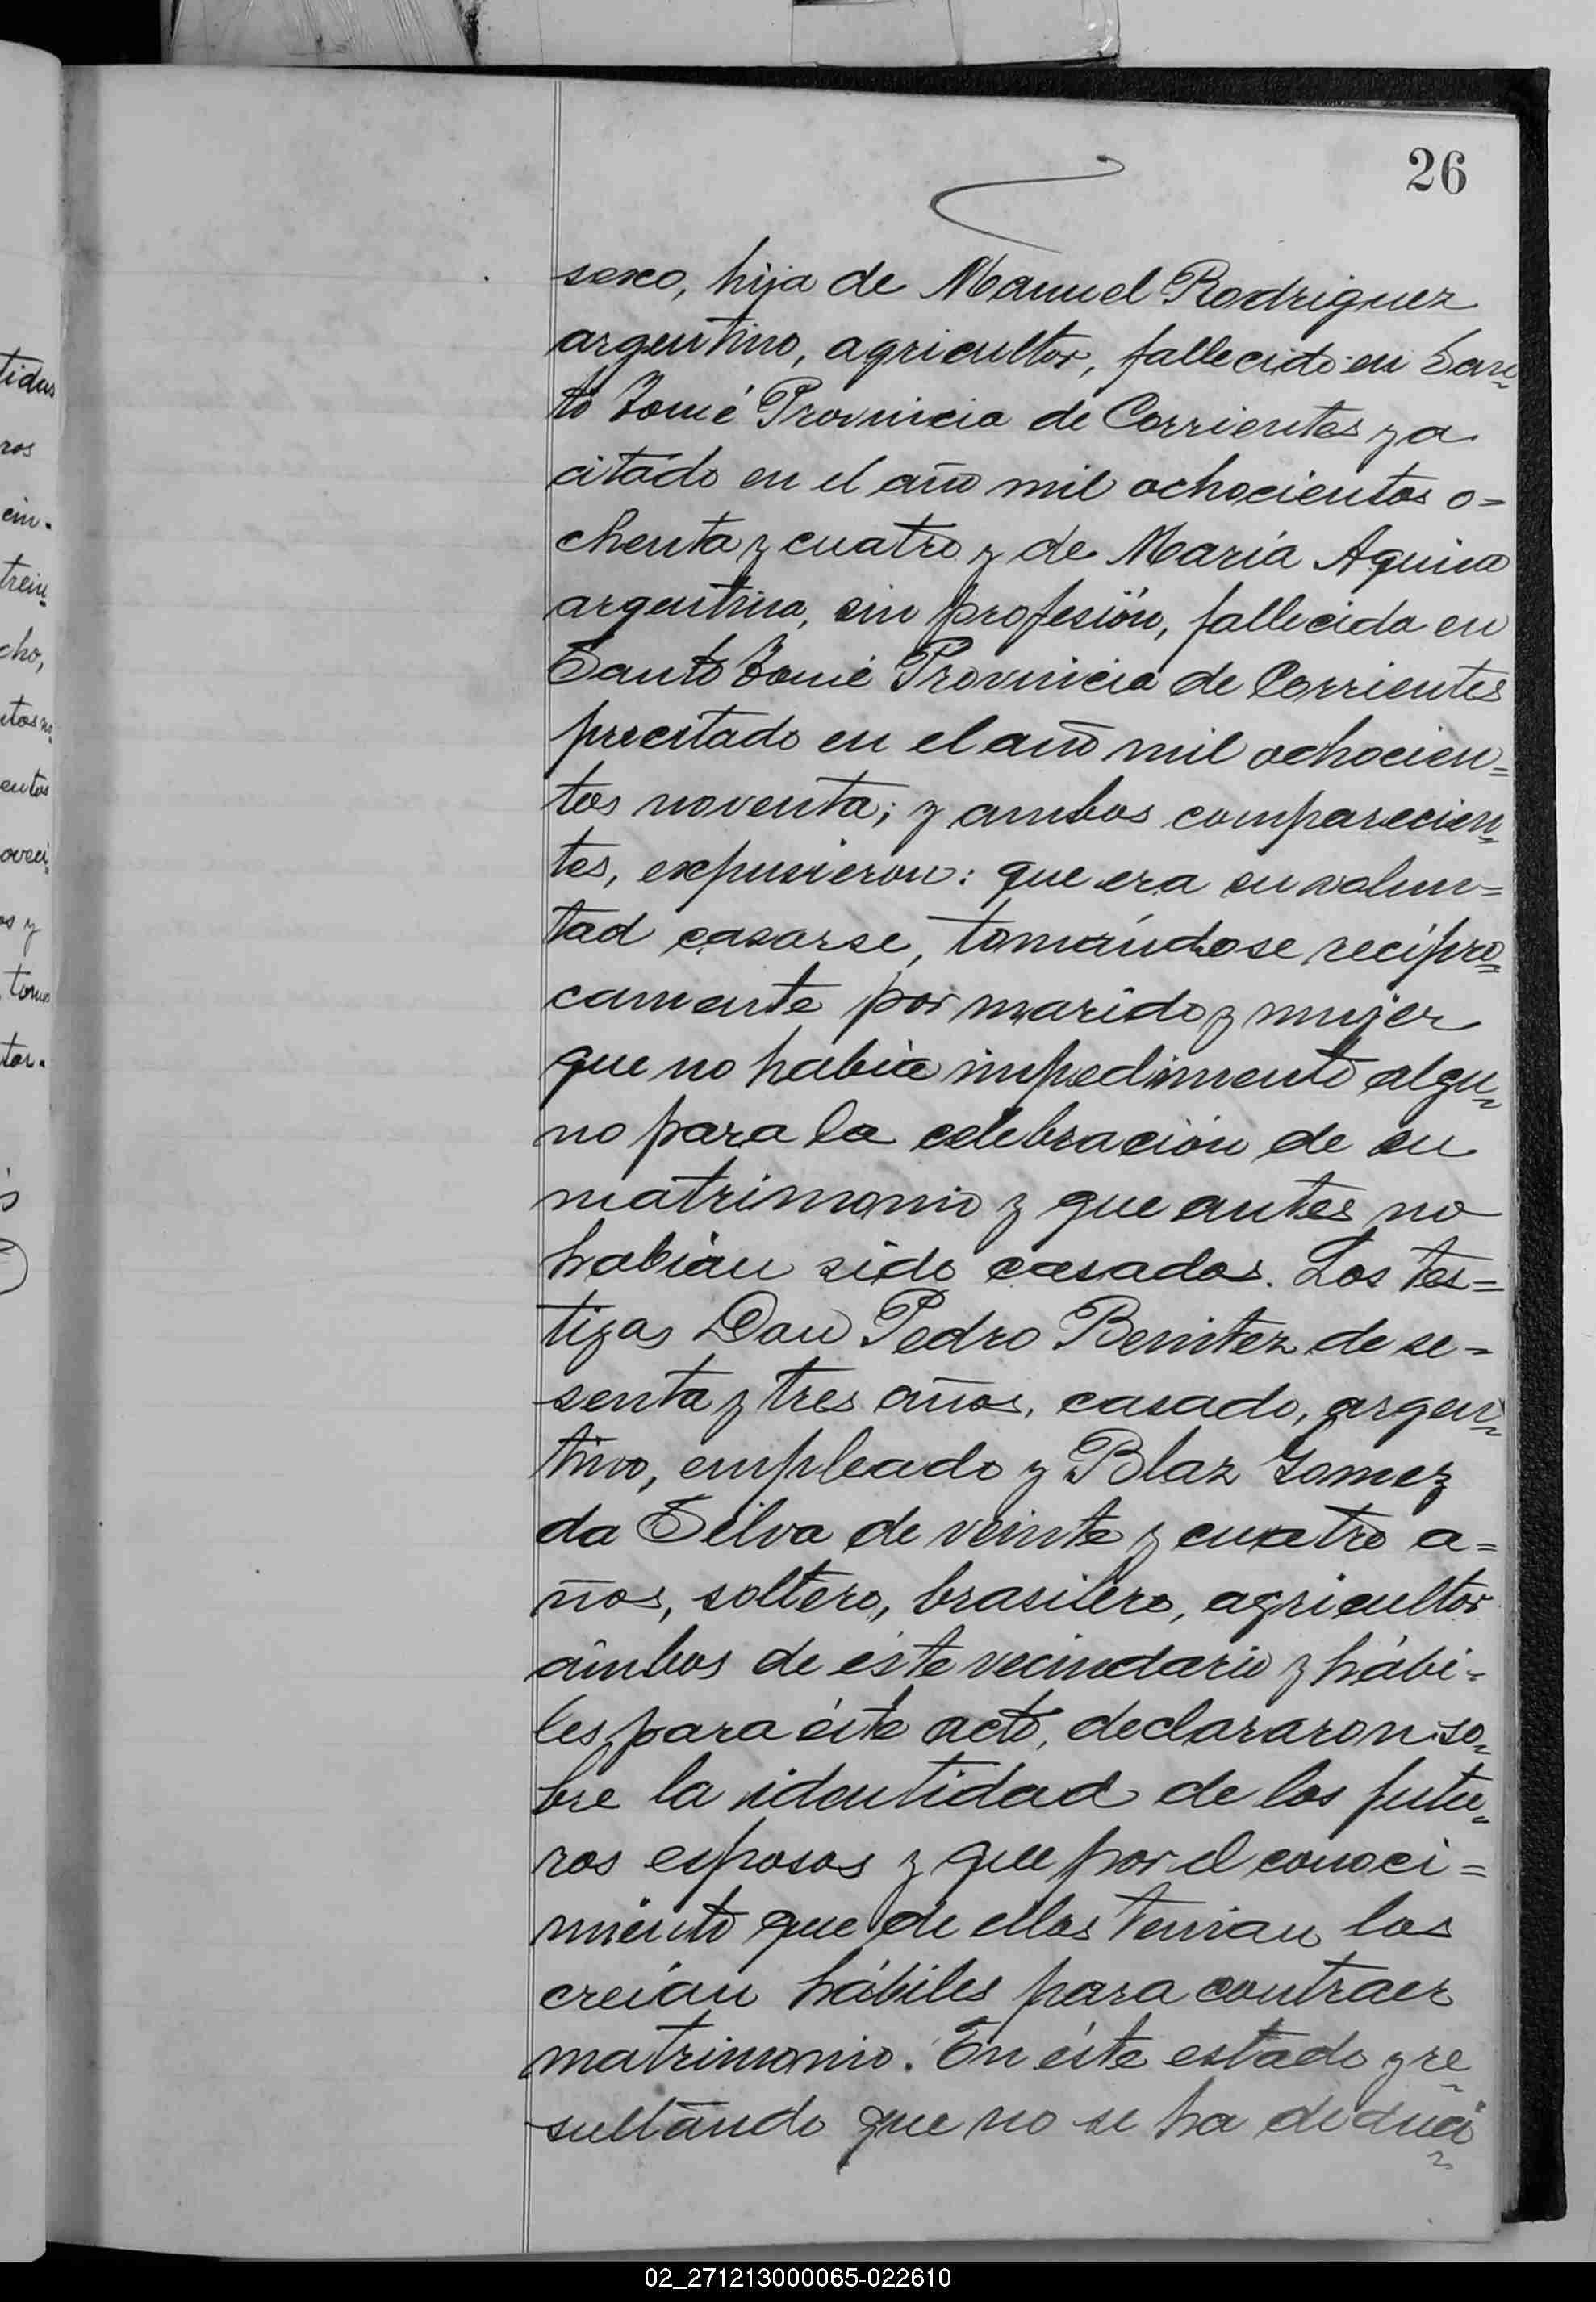 26
sexo, hija de Manuel Rodriguez
argentino, agricultor, fallecido en San=
to Tomé Provincia de Corrientes ya
citado en el año mil ochocientos o=
chenta y cuatro y de Maria Aquino
argentina, sin profesión, fallecida en
Santo Tomé Provincia de Corrientes
precitado en el año mil ochocien=
tos noventa; y ambos comparecien=
tes, expusieron: que era su volun=
tad casarse, tomándose recípro=
camente por marido y mujer
que no había impedimento algu=
no para la celebración de su
matrimonio y que antes no
habían sido casados. Los tes=
tigos Don Pedro Benitez de se=
senta y tres años, casado, argen=
tino, empleado y Blaz Gomez
da Silva de veinte y cuatro a=
ños, soltero, brasilero, agricultor
ámbos de éste vecindario y hábi=
les para éste acto, declararon so=
bre la identidad de los futu=
ros esposos y que por el conoci=
miento que de ellos tenian los
creían hábiles para contraer
matrimonio. En éste estado y re=
sultando que no se ha deduci=
tidas
ros
cin-
trein=
cho,
entos
oveci=
os y
tom
tor.
02_271213000065-022610